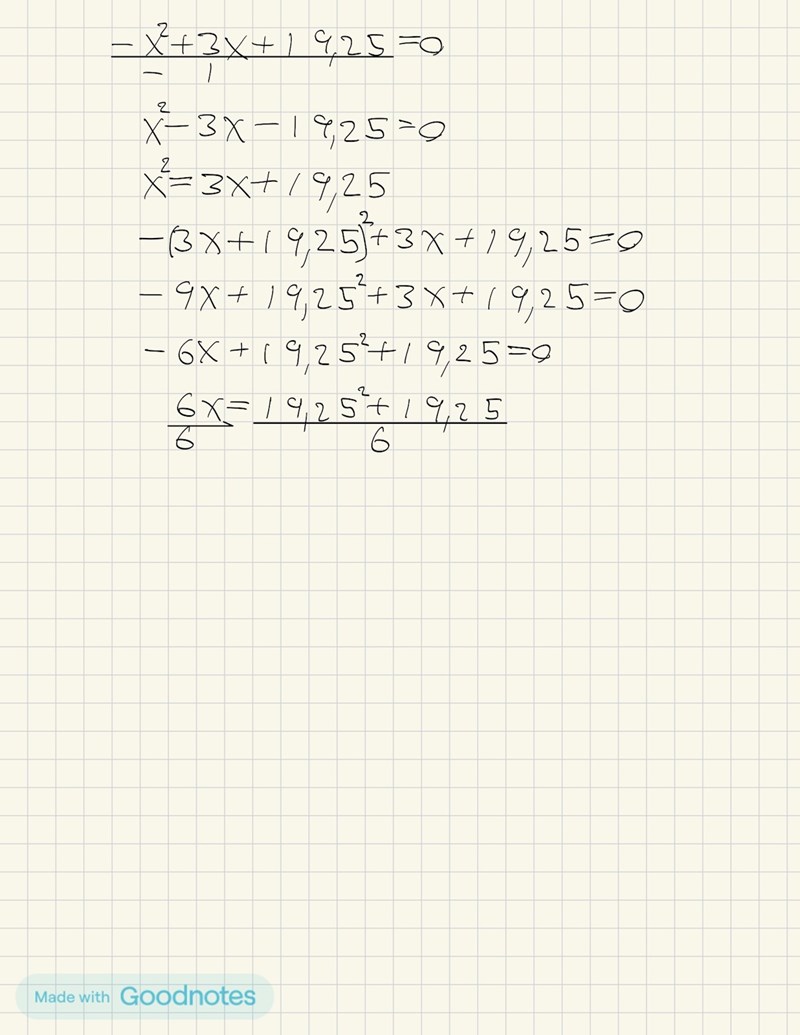 -x²+3x+19,25=0
- 1
x²-3x-19,25=0
x²=3x+19,25
-(3x+19,25)²+3x+19,25=0
-9x+19,25²+3x+19,25=0
-6x+19,25²+19,25=0
6x=19,25²+19,25
6 6
Made with Goodnotes